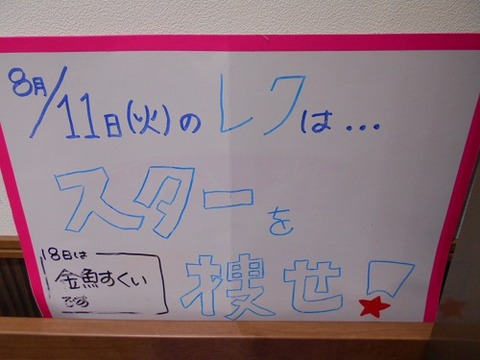 8月/11日(火)のレクは...
スターを
捜せ!
18日は
金魚すくい
です